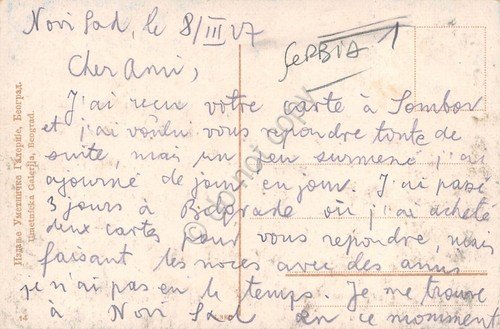 Novi Sad, le 8/III 27
SERBIA 1
Cher Ami,
J'ai reçu votre carte à Sombor
et j'ai voulu vous repondre toute de
suite, mais un peu surmené j'ai
ajourné de jour en jour. J'ai passé
3 jours à Belgrade où j'ai acheté
deux cartes pour vous repondre, mais
faisant les noces avec des amis
je n'ai pas en le temps. Je me trouve
à Novi Sad en ce momment
Издање Уметничке Галерије, Београд.
Umetnička Galerija, Beograd.
do not copy